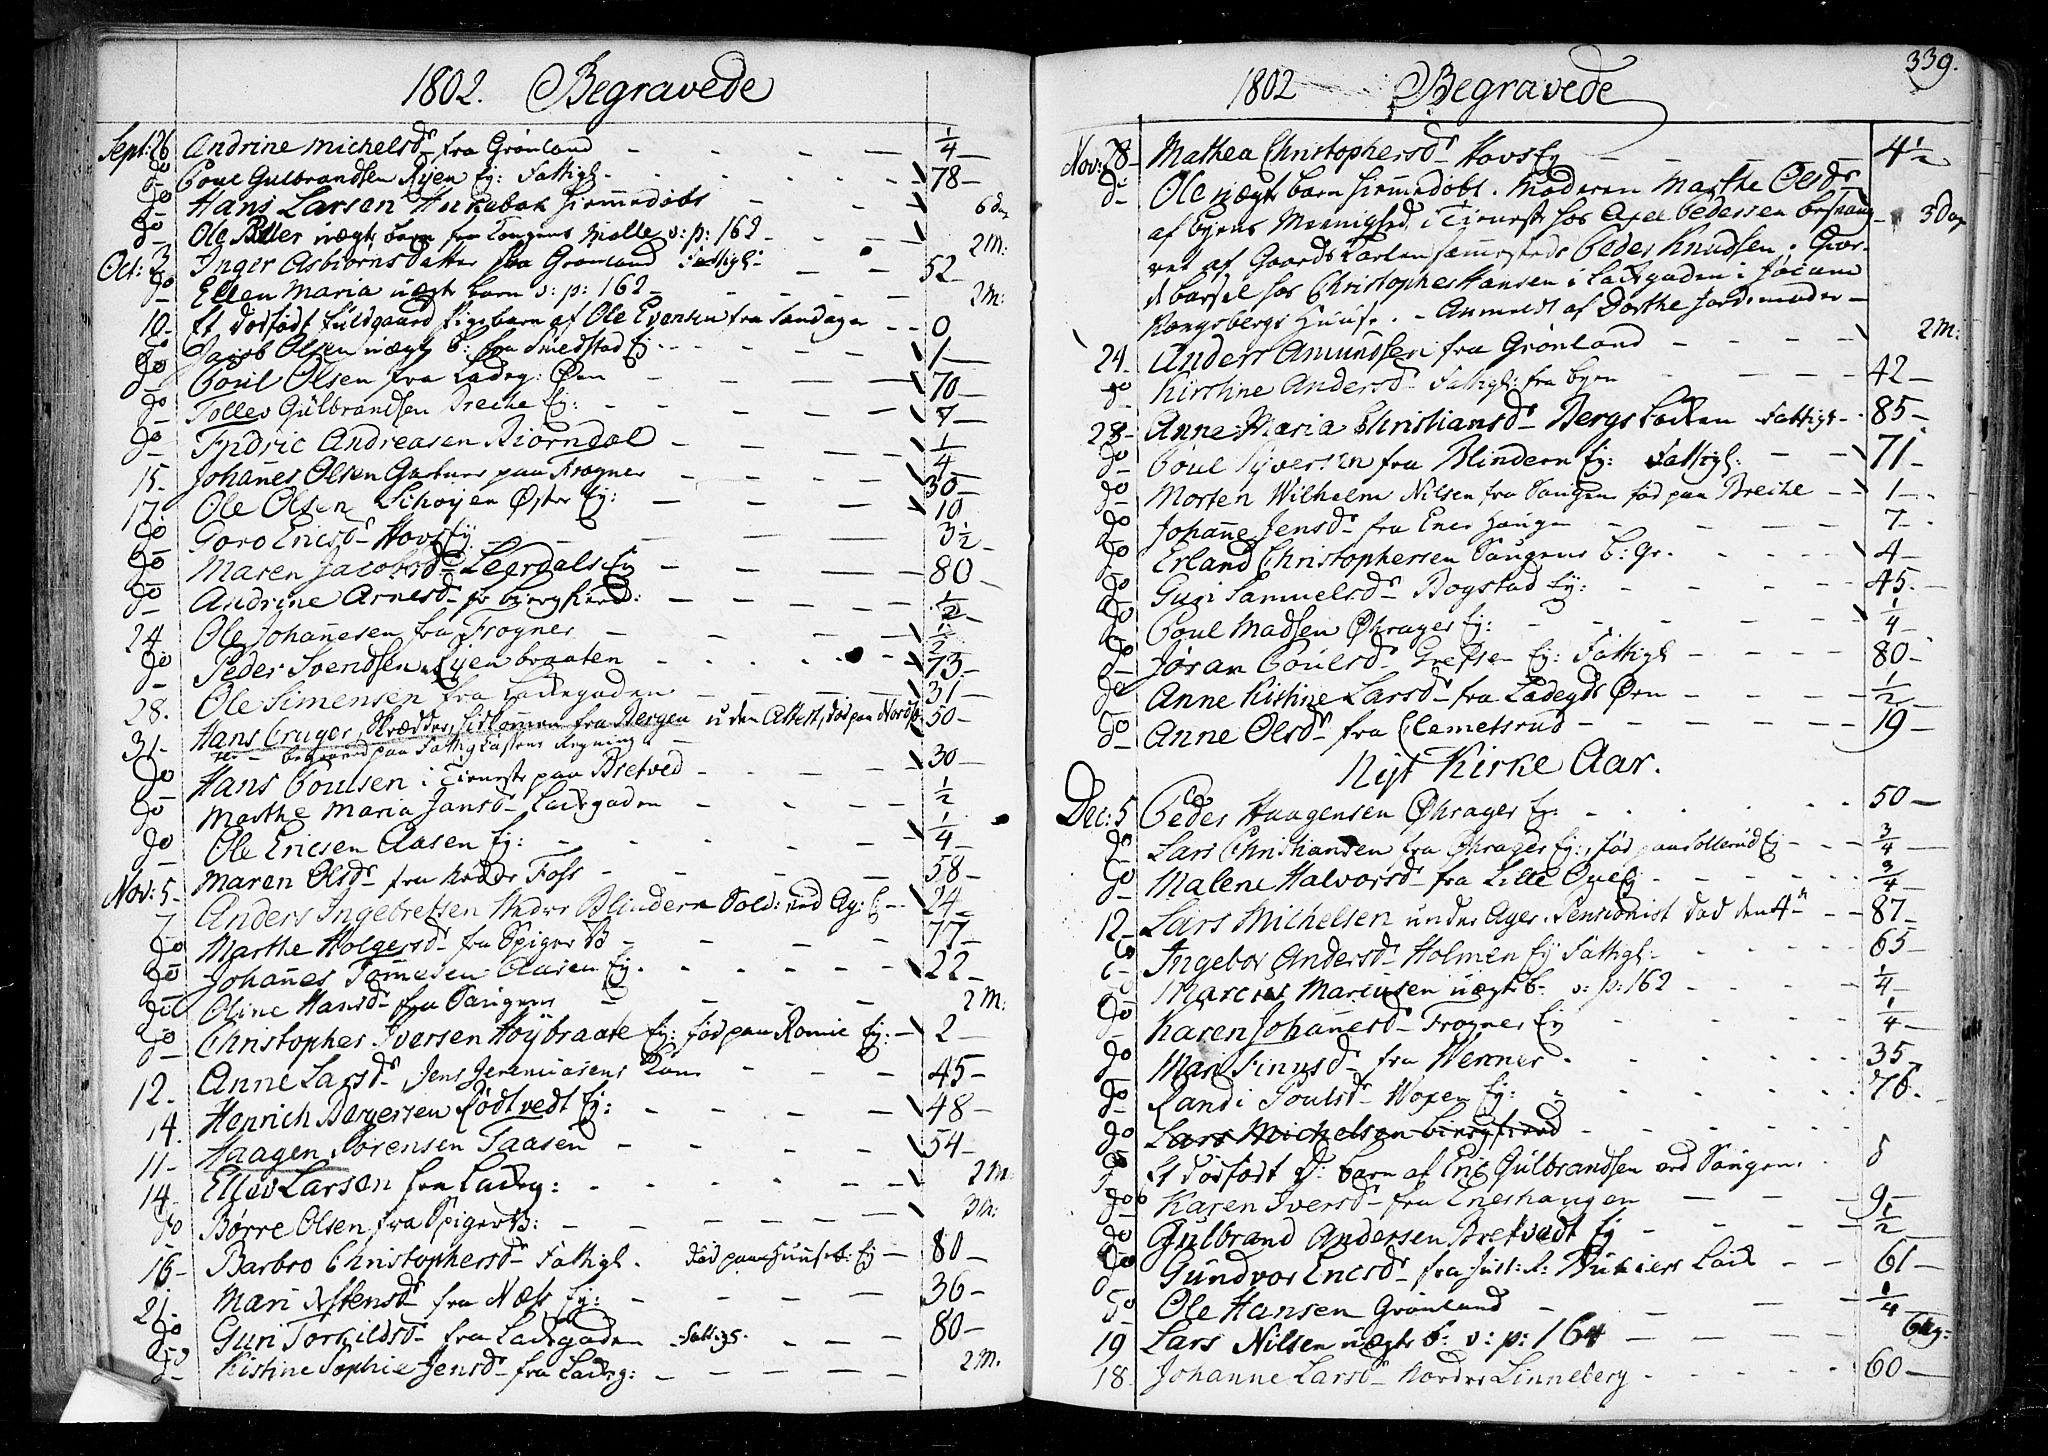 1802. Begravede
Sept: 26 Andrine Michelsd fra Grønland 1/4
do Poul Gulbrandsen Ryen Ej: Fattigl. 78
do Hans Larsen hiemmedøbt 6 dag
do Ole uægte barn fra Kongens Mølle v: p: 162 2 M:
Oct: 3 Inger Asbiørnsdatter fra Grønland Fattigl 52
do Ellen Maria uægte barn v: p: 162 2 M:
10 Et dødfødt fuldgaard Pigebarn af Ole Evensen fra Sandager 0
do Jacob Olsen uægte b: fra Smedstad Ej 1
do Poul Olsen fra Ladeg: Øen 70
do Tollev Gulbrandsen Breche Ej: 7
do Fridric Andreasen Biørndal 1/4
15 Johannes Olsen Gartner paa Frogner 30
17 Ole Olsen Lihøyen Øster Ej: 10
do Goro Ericsd Hovs Ej 3 1/2
do Maren Jacobsd Leerdals Ej 80
do Andrine Arnesd 1/2
24 Ole Johannesen fra Frogner 1/2
do Peder Svendsen Ryen braaten 73
28. Ole Simensen fra Lakkegaden 31
31 Hans Cruger, Skrædder, hidkommen fra Bergen uden Attest, død paa 50
begravet paa Fattigkassens Regning
do Hans Poulsen i Tieneste paa Bretved 30
do Marthe Maria Jansd Lakkegaden 1/2
do Ole Ericsen Aasen Ej: 1/4
Nov: 5 Maren Olsd fra Nedre Foss 58
7 Anders Ingebretsen Nedre Blindern Sold: 24
do Marthe Holgersd fra Spiger B 77
do Johannes Tommesen Aasen Ej. 22
do Oline Hansd fra Saugene 2 M:
do Christopher Iversen Høybraate Ej: fød paa Romie Ej. 2
12 Anne Larsd, Jens Jeremiasens Kone 45
14 Henrich Børgersen Rødtvedt Ej: 48
11 Haagen Sørensen Taasen 54
14 Ellev Larsen fra Lakeg: 2 M:
do Børre Olsen fra Spiger B: 3 M:
16 Barbro Christophersd Fattigl. Død paa Huuseb: Ej 80
21 Mari Stensd fra Næss Ej: 36
do Guri Torkildsd fra Lakkegaden Fattigl. 80
do Kistine Sophie Jensd fra Lakeg: 2 M.
339.
1802 Begravede
Nov: Mathea Christophersd Hovs Ej 4 1/2
do Ole uægte barn hiemmedøbt. Moderen Marthe Olsd
af byens Meenighed, i Tieneste hos Axel Pedersen 3 Dag
af Gaards Karlen sammesteds Peder Knudsen.
barsel hos Christopher Hansen i Lakkegaden i
Kongsbergs Huuse. Anmeldt af Dorthe Jordemoder
24 Anders Amundsen fra Grønland 2 M:
do Kirstine Andersd Fattigl: fra byen 42
28 Anne Maria Christiansd Bergs Løkken Fattigl 85
do Poul Syversen fra Blindern Ej: Fattigl: 71
do Morten Wilhelm Nilsen fra Saugene fød paa Breche 1
do Johanne Jensd fra Enerhaugen 7
do Erland Christophersen Saugens b: Gr. 4
do Guri Samuelsd Bogstad Ej: 45
do Poul Madsen Økrager Ej: 1/4
do Jøran Poulsd Grefsen Ej: Fattigl 80
do Anne Kistine Larsd fra Ladegds Øen 1/2
do Anne Olsd fra Clemetsrud 19
Nyt Kirke Aar.
Dec: 5 Peder Haagensen Økrager Ej: 50
do Lars Christiansen fra Økrager Ej:, fød paa Sollerud Ej 3/4
do Malene Halvorsd fra Lille Ej 3/4
12 Lars Michelsen under Ager. Pensionist død den 4de 87
do Ingebor Andersd Holmen Ej Fattigl 65
do Marcus Marcusen uægte b. v: p: 162 1/4
do Karen Johannesd Frogner Ej 1/4
do Mari Finnsd fra Wenner 35
do Randi Poulsd Woxen Ej: 76
do Lars Michelsen
do Et dødfødt D: barn af Eric Gulbrandsen ved Saugen. 0
do Karen Iversd fra Enerhaugen 9
do Gulbrand Andersen Bretvedt Ej 1/2
do Gundvor Ericsd fra Just: R: Løk 61
do Ole Hansen Grønland 1/4
19 Lars Nilsen uægte b: v: p: 164 6 Ug:
18 Johanne Larsd Nordre Linneberg 60